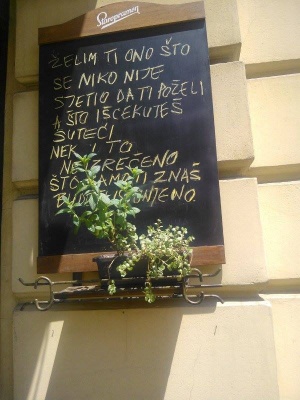 Staropramen
ŽELIM TI ONO ŠTO
SE NIKO NIJE
SJETIO DA TI POŽELI
A ŠTO IŠČEKUJEŠ
ŠUTEĆI
NEK I TO
NEIZREČENO
ŠTO SAMO TI ZNAŠ
BUDE ISPUNJENO.